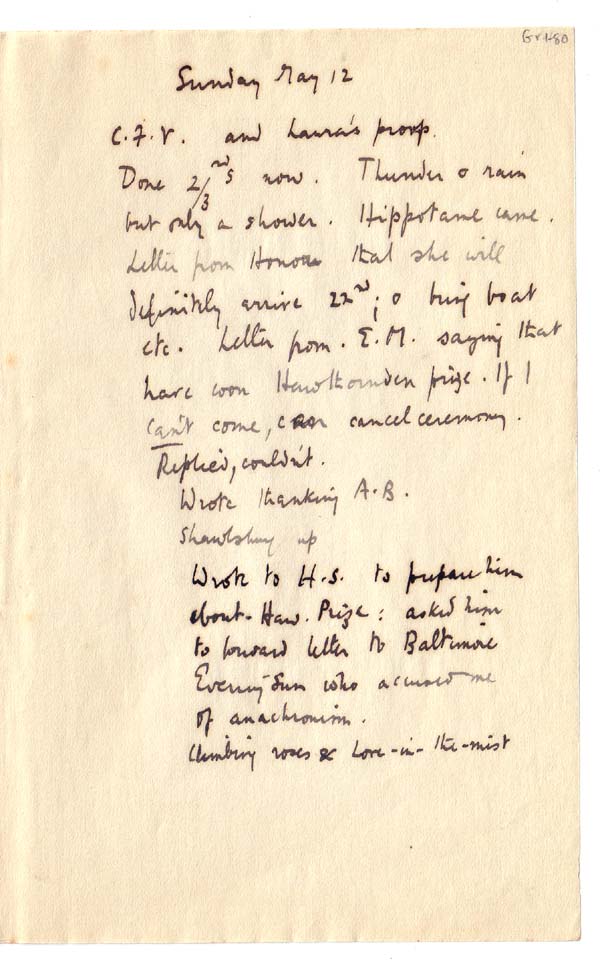 Gr 480
Sunday May 12
C.F.V. and Laura's proofs.
Done 2/3 rds now. Thunder & rain
but only a shower. Hippotame came.
Letter from Honor that she will
definitely arrive 22nd; & bring boat
etc. Letter from. E.M. saying that
have won Hawthornden prize. If I
can't come, can cancel ceremony.
Replied, couldn't.
Wrote thanking A.B.
up
Wrote to H.S. to prepare him
about Haw. Prize: asked him
to forward letter to Baltimore
Evening Sun who accused me
of anachronism.
Climbing roses & Love-in-the-mist